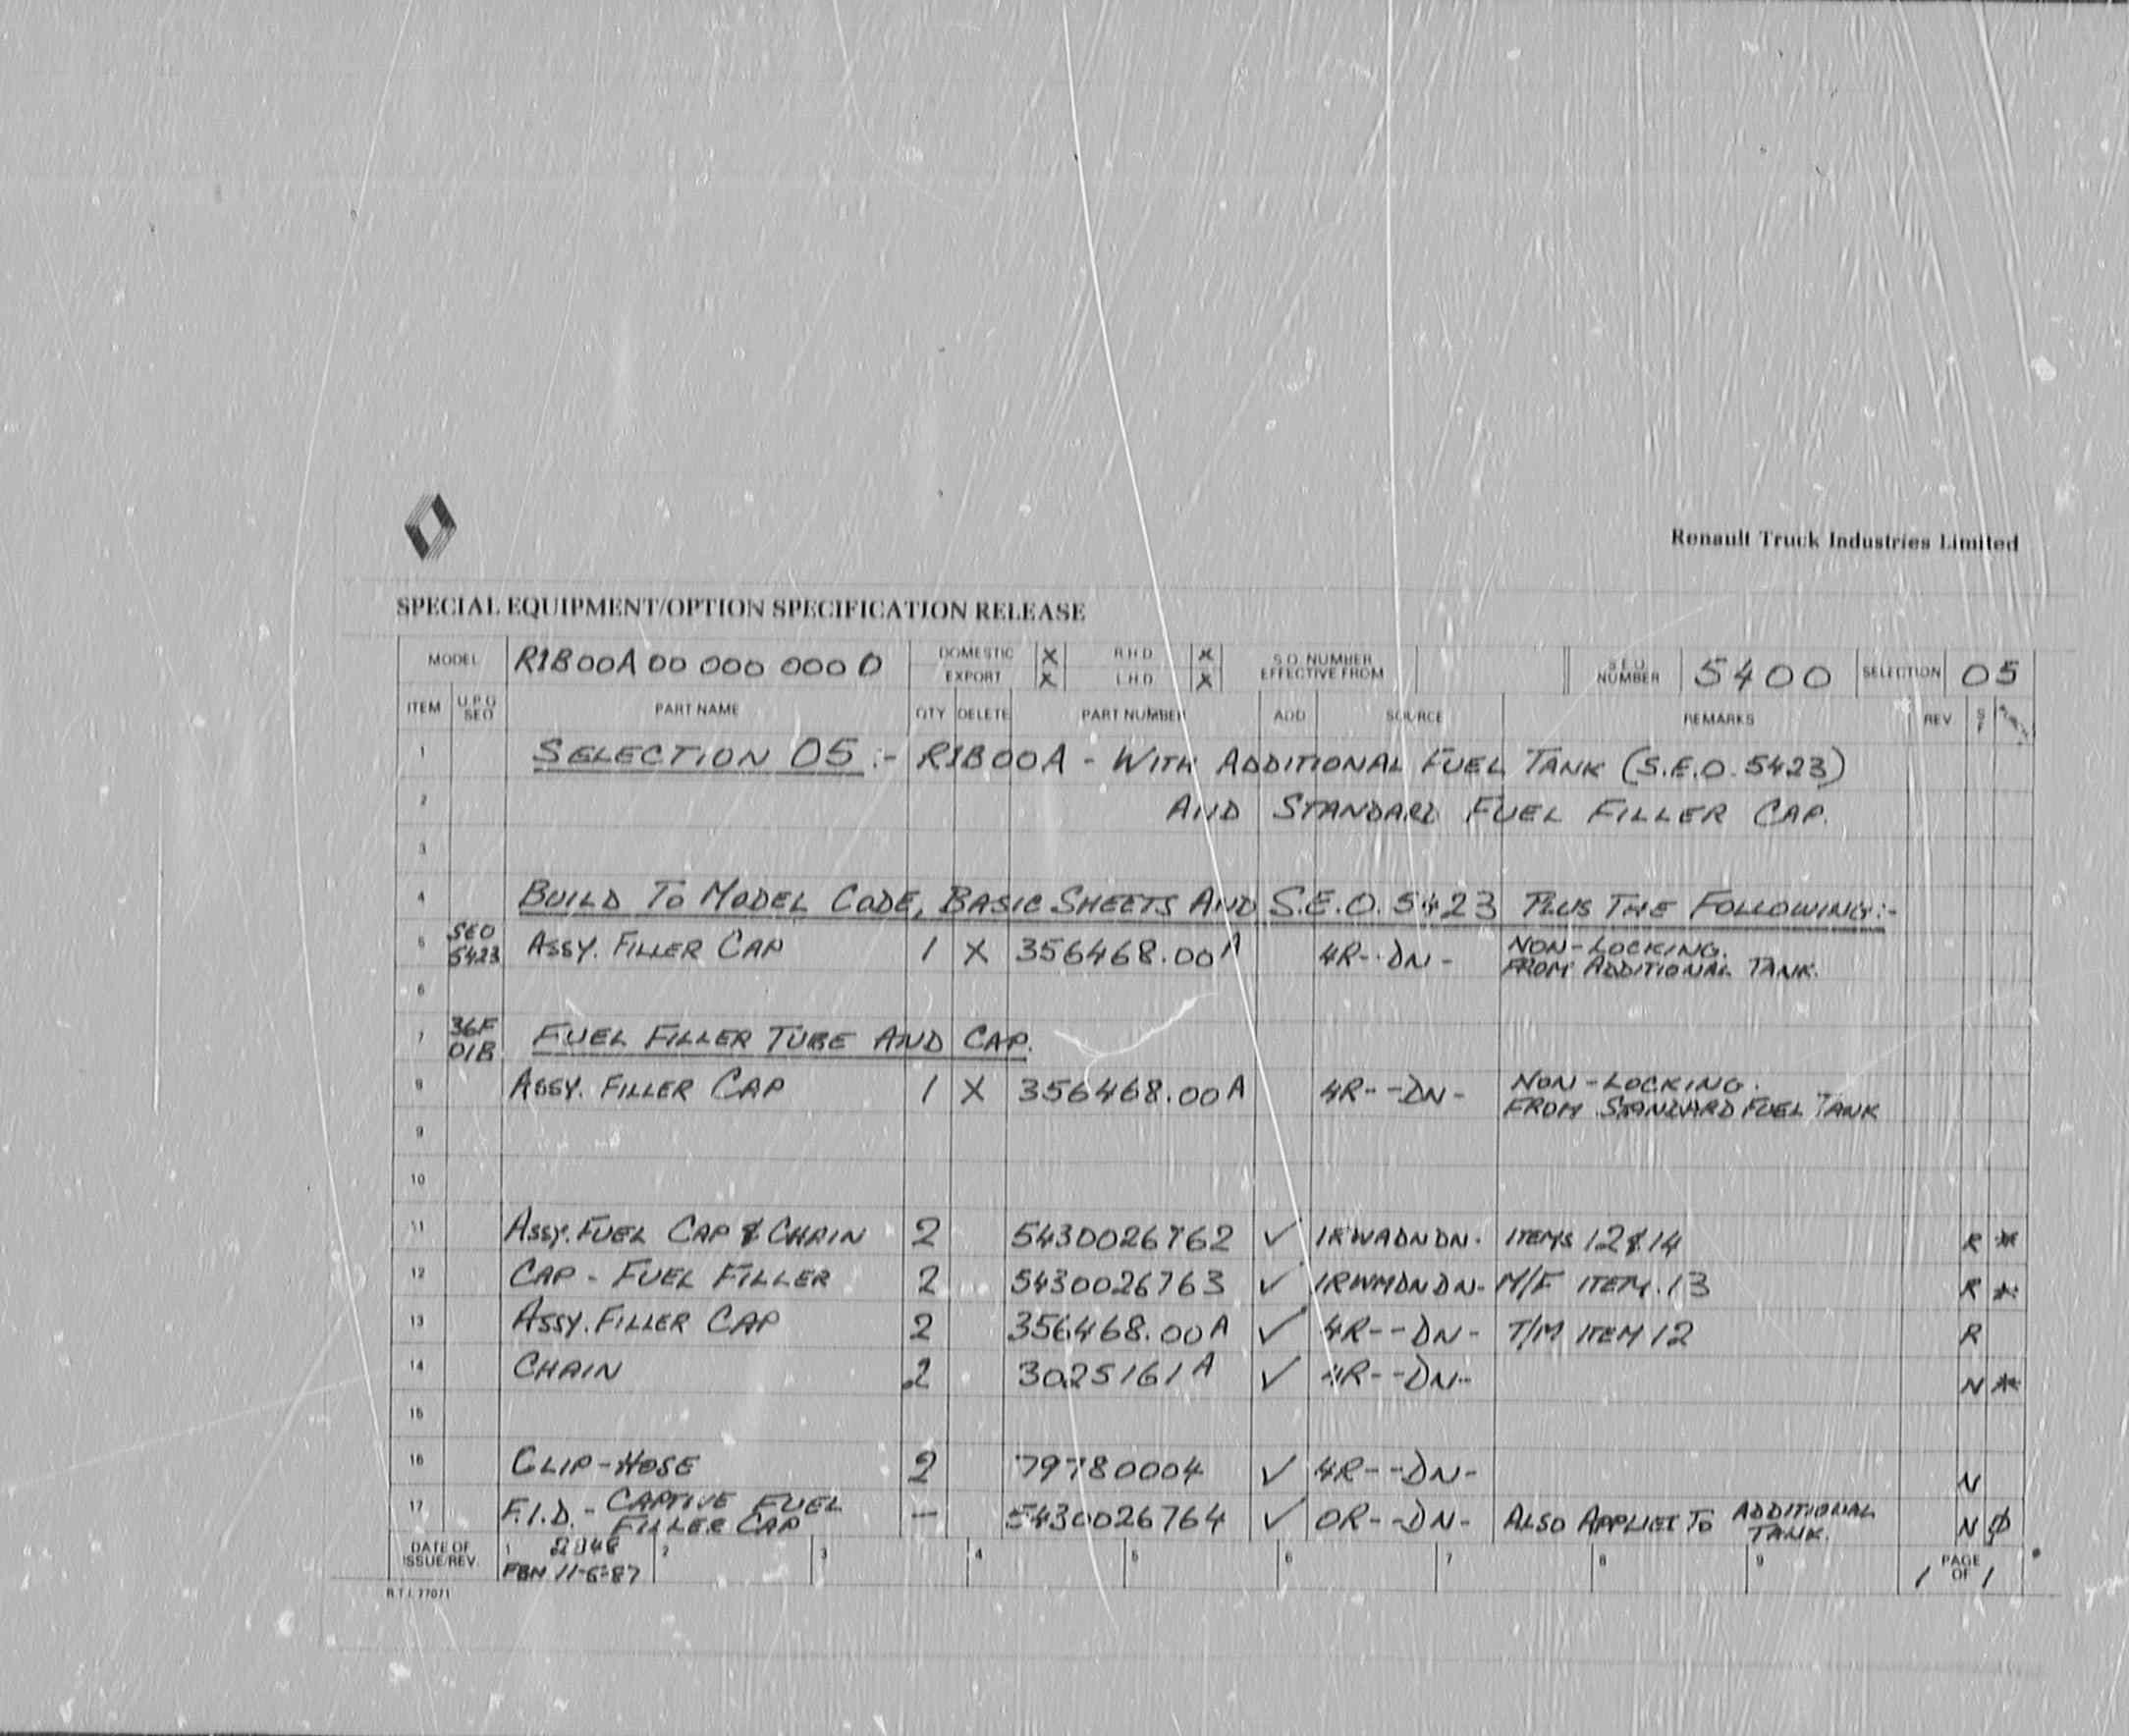 Renault Truck Industries Limited
SPECIAL EQUIPMENT/OPTION SPECIFICATION RELEASE
MODEL R1B00A 00 000 000 0 DOMESTIC X R.H.D. X S.O. NUMBER S.E.O. NUMBER 5400 SELECTION 05
EXPORT X L.H.D. X EFFECTIVE FROM
ITEM U.P.G SEO PART NAME QTY DELETE PART NUMBER ADD SOURCE REMARKS REV
1 SELECTION 05 :- R1B00A - WITH ADDITIONAL FUEL TANK (S.E.O. 5423)
2 AND STANDARD FUEL FILLER CAP.
3
4 BUILD TO MODEL CODE, BASIC SHEETS AND S.E.O. 5423 PLUS THE FOLLOWING:-
5 SEO 5423 ASSY. FILLER CAP 1 X 356468.00A 4R--DN- NON-LOCKING. FROM ADDITIONAL TANK.
6
7 36F 01B FUEL FILLER TUBE AND CAP.
8 ASSY. FILLER CAP 1 X 356468.00A 4R--DN- NON-LOCKING. FROM STANDARD FUEL TANK
9
10
11 ASSY. FUEL CAP & CHAIN 2 5430026762 ✓ 1RWADNDN- ITEMS 12 & 14 R *
12 CAP - FUEL FILLER 2 5430026763 ✓ 1RWMDNDN- M/F ITEM 13 R *
13 ASSY. FILLER CAP 2 356468.00A ✓ 4R--DN- T/M ITEM 12 R
14 CHAIN 2 3025161A ✓ 4R--DN- N *
15
16 CLIP-HOSE 2 79780004 ✓ 4R--DN- N
17 F.I.D. - CAPTIVE FUEL FILLER CAP — 5430026764 ✓ OR--DN- ALSO APPLIES TO ADDITIONAL TANK. N ϕ
DATE OF ISSUE/REV. 1 2 3 4 5 6 7 8 9 PAGE 1 OF 1
R.T.I. 77071